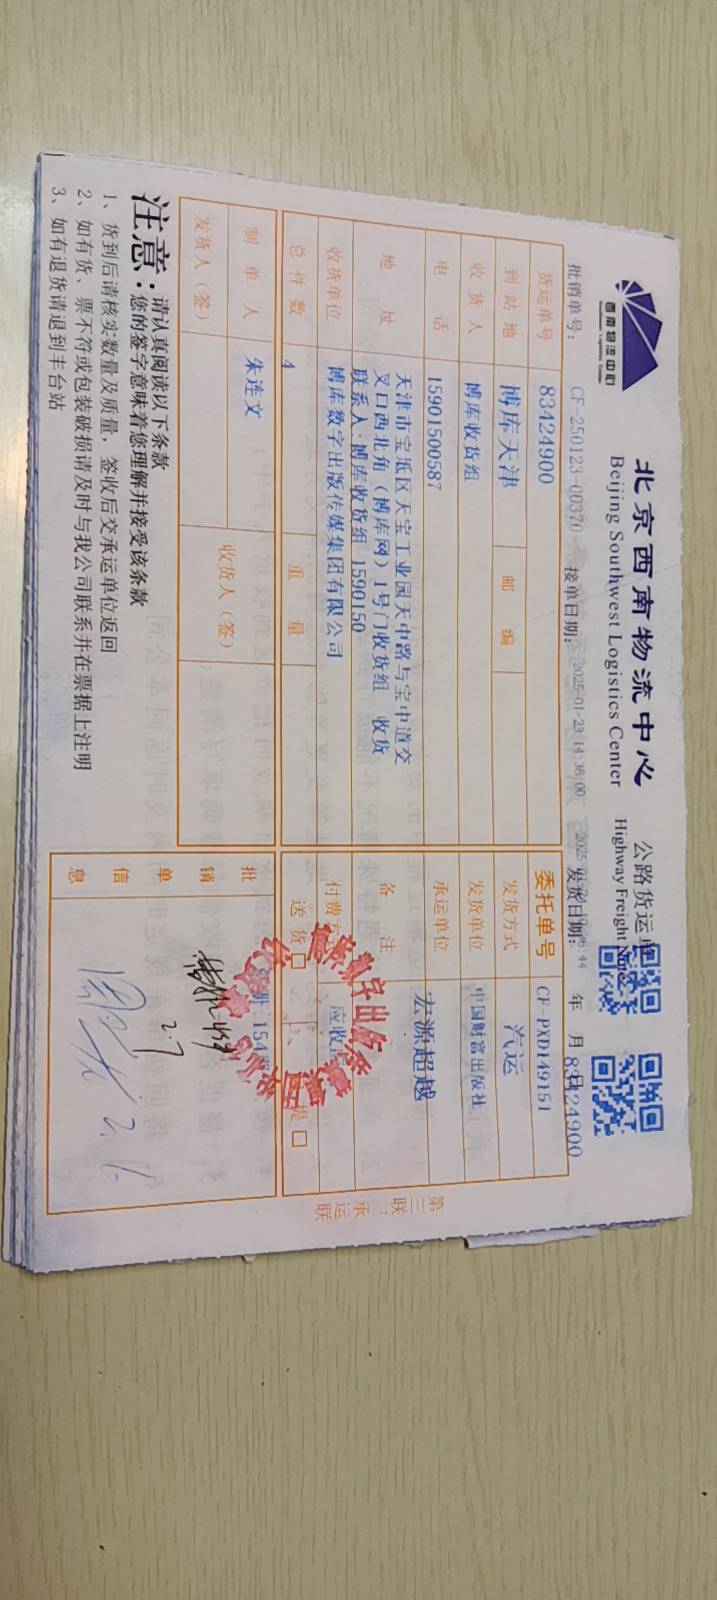 西南物流中心
Southwest Logistics Center
北京西南物流中心
Beijing Southwest Logistics Center
公路货运单
Highway Freight Note
批销单号: CF-250123-00370 接单日期: 2025-01-23 14:36:00 发货日期: 年 月 日
83424900
货运单号 83424900 委托单号 CF-PXD149151
到站地 博库天津 邮编 发货方式 汽运
收货人 博库收货组 发货单位 中国财富出版社
电话 15901500587 承运单位 宏源超越
地址 天津市宝坻区天宝工业园天中路与宝中道交
叉口西北角（博库网）1号门收货组 收货
联系人:博库收货组 1590150
备注
收货单位 博库数字出版传媒集团有限公司 付费方式 应收
总件数 4 重量 送货 □ 提 □
制单人 朱连文 收货人（签）
发货人（签）
批销单信息
册:154
2.7
2.6
第三联:承运联
注意:
请认真阅读以下条款
您的签字意味着您理解并接受该条款
1、货到后请核实数量及质量，签收后交承运单位返回
2、如有货、票不符或包装破损请及时与我公司联系并在票据上注明
3、如有退货请退到丰台站